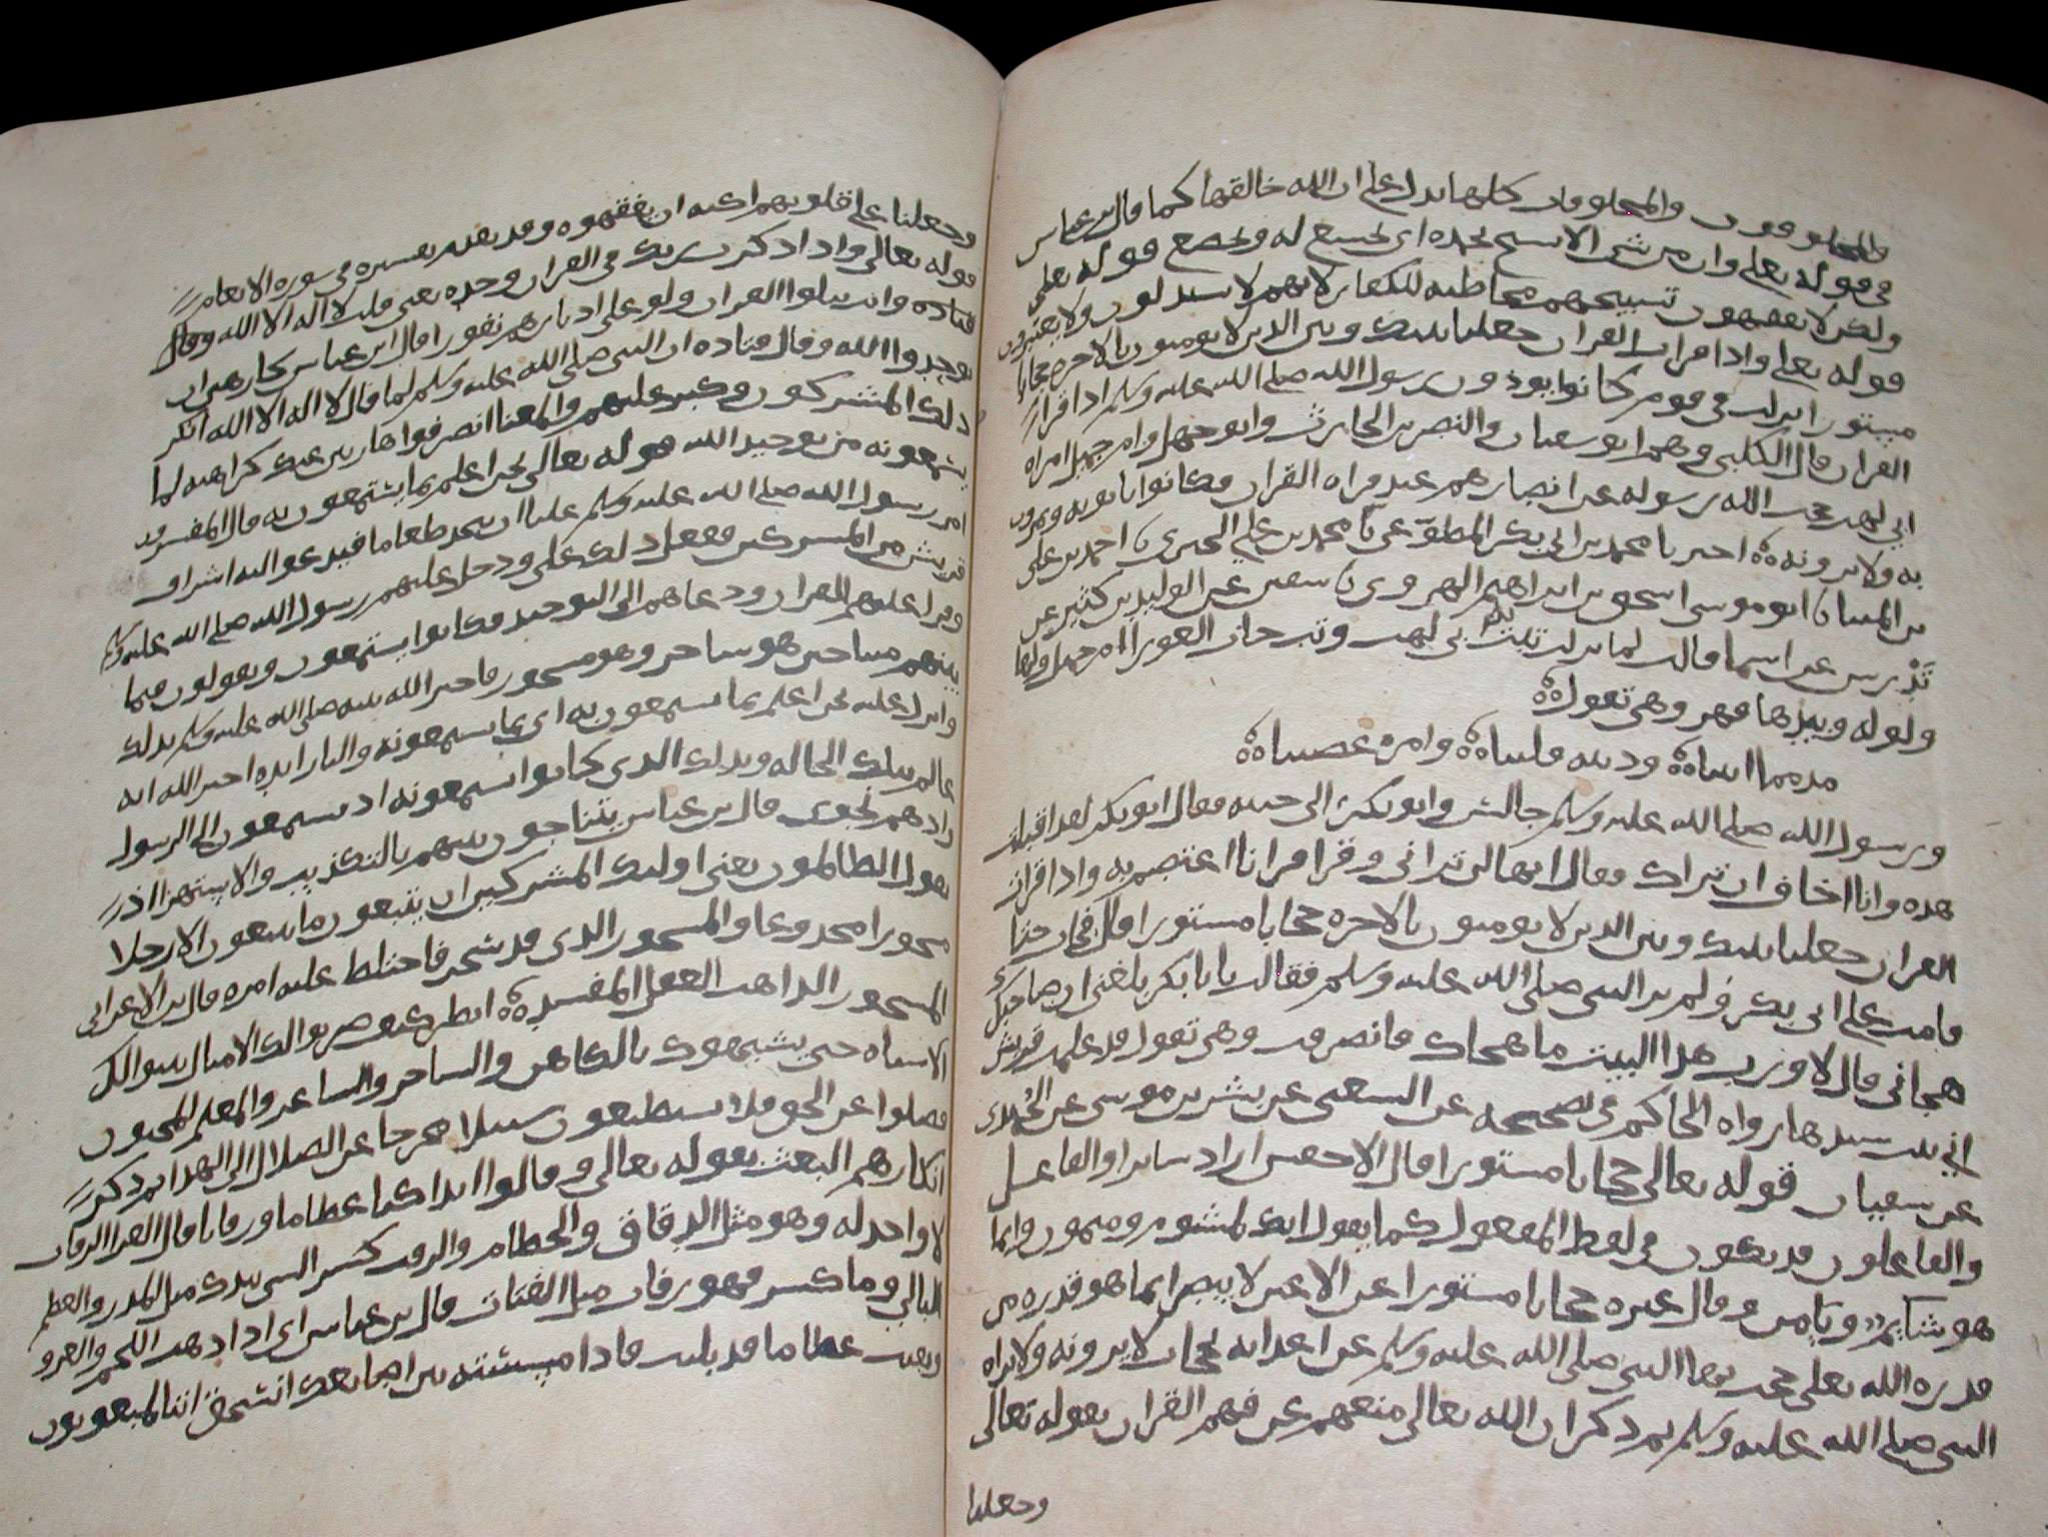 والمخلوقون والمخلوقات كلها تدل على ان الله خالقها كما قال بن عباس
في قوله تعلى وان من شي الا يسبح بحمده اي يخشع له ويخضع قوله تعلى
ولكن لا تفقهون تسبيحهم مخاطبه للكفار لانهم لا يستدلون ولا يعتبرون
قوله تعلى واذا قرات القران جعلنا بينك وبين الذين لا يومنون بالاخره حجابا
مستورا نزلت في قوم كانوا يوذون رسول الله صلى الله عليه وسلم اذا قرا
القران قال الكلبي وهم ابو سفيان والنضر بن الحارث وابو جهل وام جميل امراه
ابي لهب حجب الله رسوله عن ابصارهم عند قراه القران فكانوا ياتونه ويمرون
به ولا يرونه اخبرنا محمد بن ابي بكر المطوعي نا محمد بن علي الحيري نا احمد بن على
بن المثنى نا ابو موسى اسحق بن ابراهيم الهروي نا سفين عن الوليد بن كثير عن
تدرس عن اسما قالت لما نزلت تبت يدا ابي لهب وتب جات العورا ام جميل ولها
ولوله وبيدها فهر وهي تقول
مذمما ابيناه ودينه قليناه وامره عصيناه
ورسول الله صلى الله عليه وسلم جالس وابو بكر الى جنبه فقال ابو بكر لقد اقبلت
هذه وانا اخاف ان تراك فقال انها لن تراني وقرا قرانا اعتصم به واذا قرات
القران جعلنا بينك وبين الذين لا يومنون بالاخره حجابا مستورا قال فجات حتى
قامت على ابي بكر فلم تر النبي صلى الله عليه وسلم فقالت يابا بكر بلغني ان صاحبك
هجاني قال لا ورب هذا البيت ما هجاك فانصرفت وهي تقول قد علمت قريش
اني بنت سيدها رواه الحاكم في صحيحه عن السعبي عن بشر بن موسى عن الحميدي
عن سفيان قوله تعالى حجابا مستورا قال الاخفش اراد ساترا والفاعل
والفاعلون قد يكون في لفظ المفعول كما يقول انك لمشوم وميمون وانما
هو شايم ويامن وقال غيره حجابا مستورا عن الاعين لا يبصر انما هو قدره من
قدره الله تعلى حجب بها النبي صلى الله عليه وسلم عن اعدايه بحجاب لا يرونه ولا يراه
النبي صلى الله عليه وسلم ثم ذكر ان الله تعالى منعهم عن فهم القران بقوله تعالى
وجعلنا
وجعلنا على قلوبهم اكنه ان يفقهوه وقد تقدم تفسيره في سوره الانعام
قوله تعالى واذا ذكرت ربك في القران وحده يعني قلت لا اله الا الله وقال
قتاده وانت تتلوا القران ولو على ادبارهم نفورا قال ابن عباس كارهين ان
يوحدوا الله وقال قتاده ان النبي صلى الله عليه وسلم لما قال لا اله الا الله انكر
ذلك المشركون وكبر عليهم والمعنا انصرفوا هاربين عنك كراهيه لما
يسمعونه من توحيد الله قوله تعالى نحن اعلم بما يستمعون به قال المفسرون
امر رسول الله صلى الله عليه وسلم عليا ان يتخذ طعاما فيدعو اليه اشراف
قريش من المشركين ففعل ذلك على ودخل عليهم رسول الله صلى الله عليه وسلم
وقرا عليهم القران ودعاهم الى التوحيد فكانوا يستمعون ويقولون فيما
بينهم متناجين هو ساحر وهو مسحور فاخبر الله نبيه صلى الله عليه وسلم بذلك
وانزل عليه نحن اعلم بما يستمعون به اي بما يستمعونه والبا زايده اخبر الله انه
عالم بتلك الحاله وبذلك الذي كانوا يستمعونه اذ يستمعون الى الرسول
واذ هم نجوى قال بن عباس يتناجون بينهم بالتكذيب والاستهزا اذ
يقول الظالمون يعني اوليك المشركين ان يتبعون ما تتبعون الا رجلا
مسحورا مخدوعا والمسحور الذي قد سحر فاختلط عليه امره قال بن الاعرابي
المسحور الذاهب العقل المفسد انظر كيف ضربوا لك الامثال بينوا لك
الاشباه حتى يشبهوك بالكاهن والساحر والشاعر والمعلم المجنون
فضلوا عن الحق فلا يستطيعون سبيلا مخرجا عن الضلال الى الهدا ثم ذكر
انكارهم البعث بقوله تعالى وقالوا ايذا كنا عظاما ورفاتا قال الفرا الرفات
لا واحد له وهو مثل الدقاق والحطام والرفت كسر الشي بيدك مثل المدر والعظم
البالي وما كسر فهو رفات مثل الفتات قال بن عباس اي اذا ذهب اللحم والعروق
وبقيت عظاما قد بليت فاذا مسسته بين اصابعك انسحق ائنا لمبعوثون